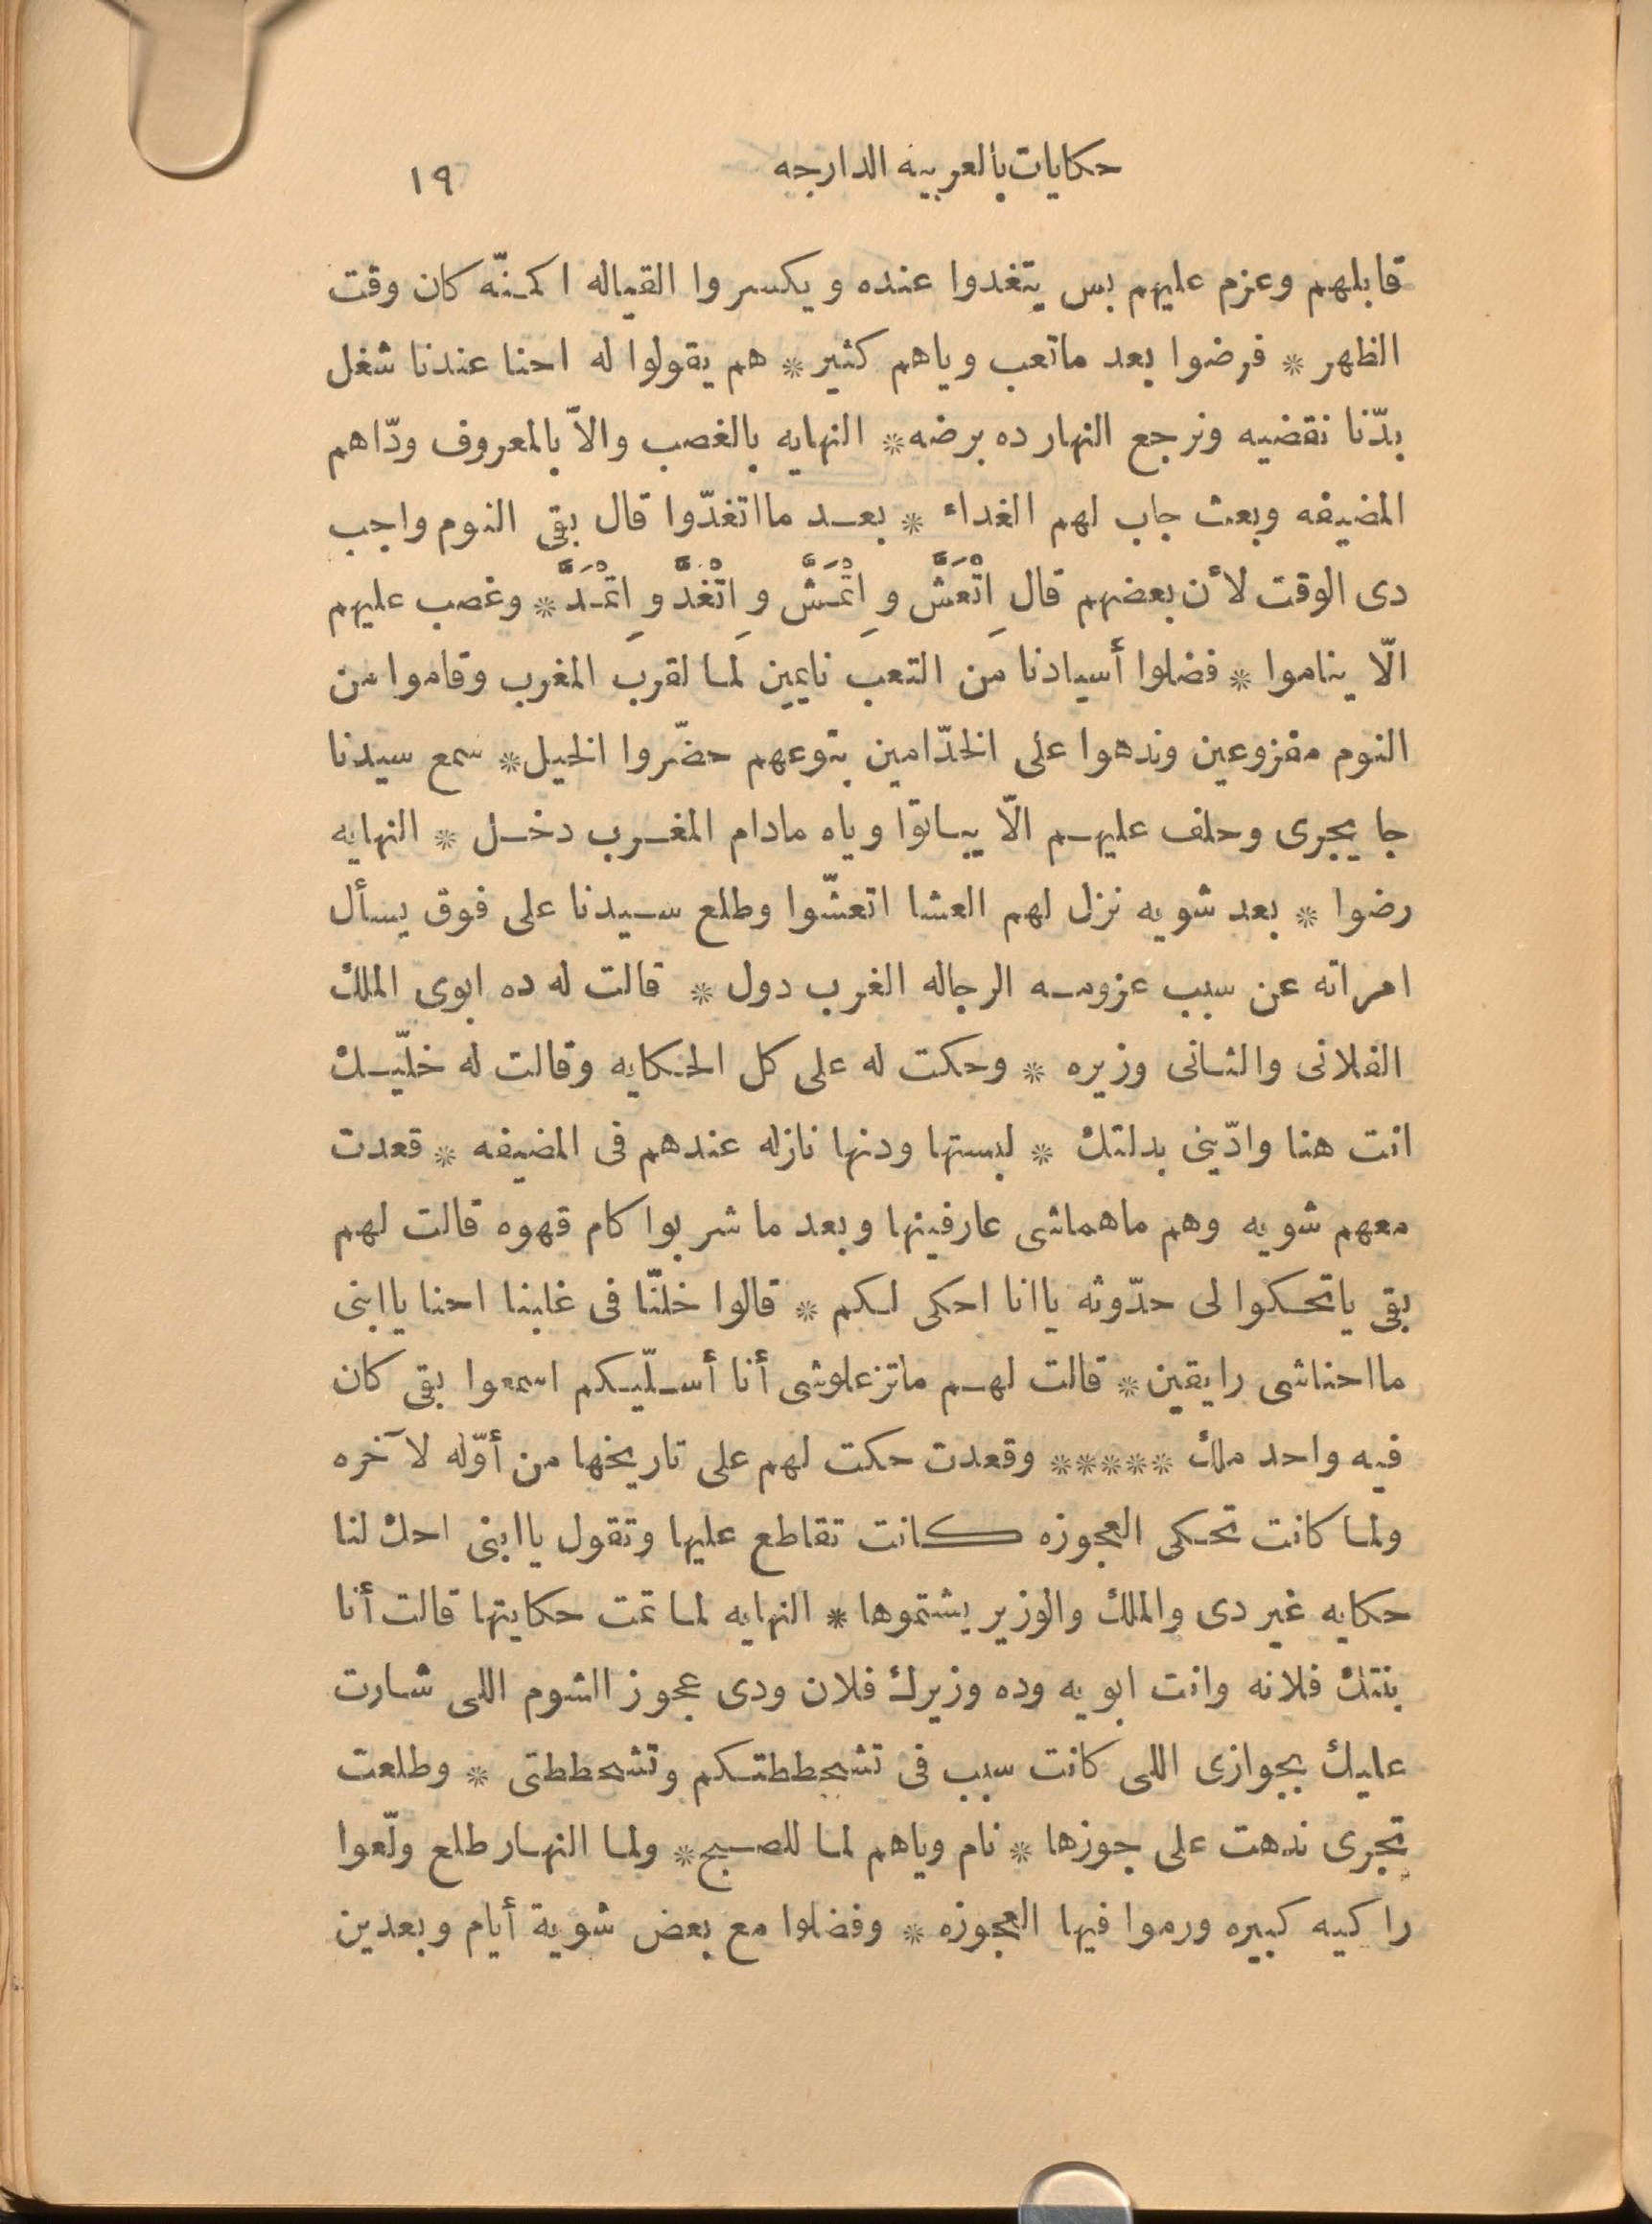 حكايات بالعربيه الدارجه ١٩
قابلهم وعزم عليهم بس يتغدوا عنده ويكسروا القياله اكمنّه كان وقت
الظهر * فرضوا بعد ماتعب وياهم كثير * هم يقولوا له احنا عندنا شغل
بدّنا نقضيه ونرجع النهار ده برضه * النهايه بالغصب والاّ بالمعروف ودّاهم
المضيفه وبعث جاب لهم الغداء * بعد مااتغدّوا قال بقى النوم واجب
دى الوقت لأن بعضهم قال اِتْعَشَّ و اِتْمَشَّ و اِتْغَدَّ و اِتْمَدَّ * وغصب عليهم
الّا يناموا * فضلوا أسيادنا من التعب نايمين لما لقرب المغرب وقاموا من
النوم مفزوعين وندهوا على الخدّامين بتوعهم حضّروا الخيل * سمع سيدنا
جا يجرى وحلف عليهم الّا يباتوا وياه مادام المغرب دخل * النهايه
رضوا * بعد شويه نزل لهم العشا اتعشّوا وطلع سيدنا على فوق يسأل
امراته عن سبب عزومه الرجاله الغرب دول * قالت له ده ابوى الملك
الفلانى والثانى وزيره * وحكت له على كل الحكايه وقالت له خلّيك
انت هنا وادّينى بدلتك * لبستها ودنها نازله عندهم فى المضيفه * قعدت
معهم شويه وهم ماهماشى عارفينها وبعد ما شربوا كام قهوه قالت لهم
بقى ياتحكوا لى حدّوته ياانا احكى لكم * قالوا خلّنّا فى غلبنا احنا ياابنى
مااحناشى رايقين * قالت لهم ماتزعلوشى أنا أسلّيكم اسمعوا بقى كان
فيه واحد ملك ***** وقعدت حكت لهم على تاريخها من أوّله لآخره
ولما كانت تحكى العجوزه كانت تقاطع عليها وتقول ياابنى احك لنا
حكايه غير دى والملك والوزير يشتموها * النهايه لما تمت حكايتها قالت أنا
بنتك فلانه وانت ابويه وده وزيرك فلان ودى عجوز الشوم اللى شارت
عليك بجوازى اللى كانت سبب فى تشحططتكم وتشحططتى * وطلعت
تجرى ندهت على جوزها * نام وياهم لما للصبح * ولما النهار طلع ولّعوا
راكيه كبيره ورموا فيها العجوزه * وفضلوا مع بعض شوية أيام وبعدين